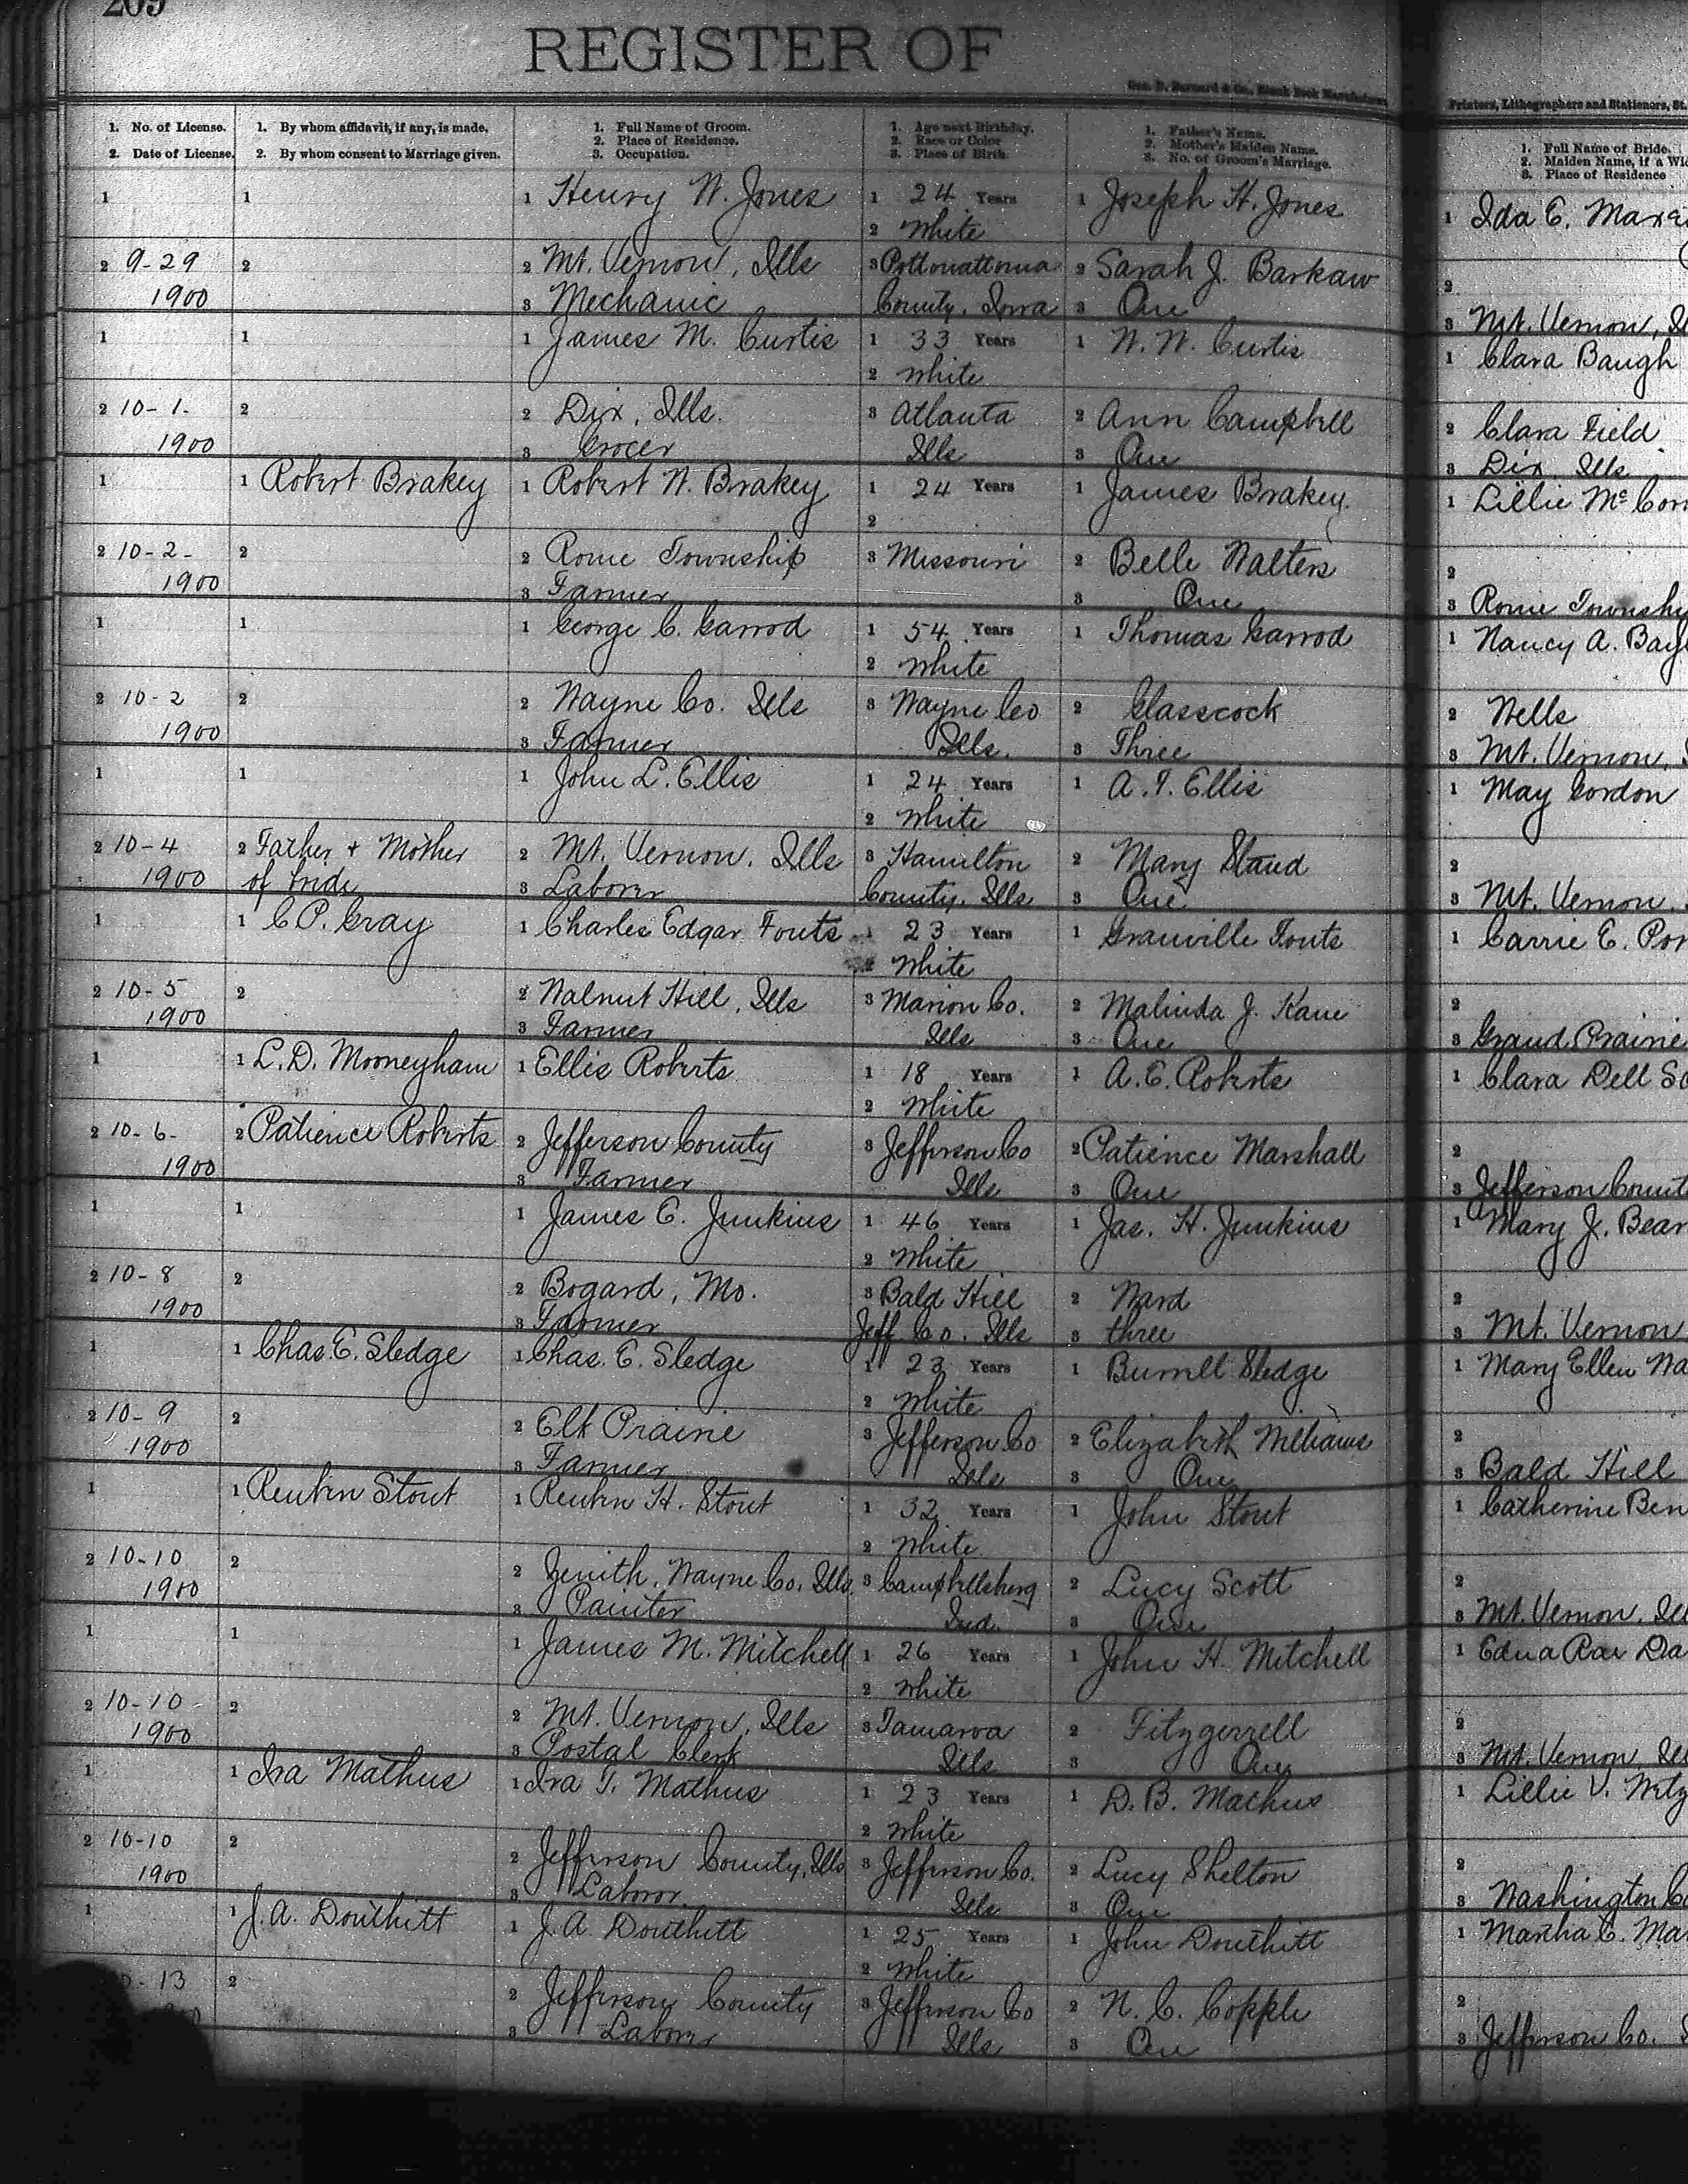 209
REGISTER OF
Geo. D. Barnard & Co., Blank Book Manufacturers
Printers, Lithographers and Stationers, St.
1. No. of License.
2. Date of License.
1. By whom affidavit, if any, is made.
2. By whom consent to Marriage given.
1. Full Name of Groom.
2. Place of Residence.
3. Occupation.
1. Age next Birthday.
2. Race or Color
3. Place of Birth.
1. Father's Name.
2. Mother's Maiden Name.
3. No. of Groom's Marriage.
1. Full Name of Bride.
2. Maiden Name, if a Wid
3. Place of Residence
1 1 1 Henry W. Jones 1 24 Years 1 Joseph H. Jones 1 Ida E. Maxe
2 White
2 9-29 2 2 Mt. Vernon, Ills 3 Pottowattoma 2 Sarah J. Barkaw 2
1900 3 Mechanic County, Iowa 3 One 3 Mt. Vernon, Il
1 1 1 James M. Curtis 1 33 Years 1 W. W. Curtis 1 Clara Baugh
2 White
2 10-1- 2 2 Dix, Ills. 3 Atlanta 2 Ann Campbell 2 Clara Field
1900 3 Grocer Ills 3 One 3 Dix Ills
1 1 Robert Brakey 1 Robert W. Brakey 1 24 Years 1 James Brakey. 1 Lillie Mc Cor
2
2 10-2- 2 2 Rome Township 3 Missouri 2 Belle Walters 2
1900 3 Farmer 3 One 3 Rome Townshi
1 1 1 George C. Garrod 1 54 Years 1 Thomas Garrod 1 Nancy A. Bay
2 White
2 10-2 2 2 Wayne Co. Ills 3 Wayne Co 2 Glasscock 2 Wells
1900 3 Farmer Ills. 3 Three 3 Mt. Vernon,
1 1 1 John L. Ellis 1 24 Years 1 A. T. Ellis 1 May Gordon
2 White
2 10-4 2 Father & Mother 2 Mt. Vernon, Ills 3 Hamilton 2 Mary Staud 2
1900 of bride 3 Laborer County, Ills 3 One 3 Mt. Vernon,
1 1 C. P. Gray 1 Charles Edgar Fouts 1 23 Years 1 Granville Fouts 1 Carrie E. Por
2 White
2 10-5 2 2 Walnut Hill, Ills 3 Marion Co. 2 Malinda J. Kane 2
1900 3 Farmer Ills 3 One 3 Grand Prairie
1 1 L. D. Mooneyham 1 Ellis Roberts 1 18 Years 1 A. E. Roberts 1 Clara Dell So
2 White
2 10-6- 2 Patience Roberts 2 Jefferson County 3 Jefferson Co 2 Patience Marshall 2
1900 3 Farmer Ills 3 One 3 Jefferson Count
1 1 1 James C. Junkins 1 46 Years 1 Jas. H. Junkins 1 Mary J. Bear
2 White
2 10-8 2 2 Bogard, Mo. 3 Bald Hill 2 Ward 2
1900 3 Farmer Jeff. Co. Ills 3 three 3 Mt. Vernon
1 1 Chas. E. Sledge 1 Chas. E. Sledge 1 23 Years 1 Burrell Sledge 1 Mary Ellen Wa
2 White
2 10-9 2 2 Elk Prairie 3 Jefferson Co 2 Elizabeth Williams 2
1900 3 Farmer Ills 3 One 3 Bald Hill
1 1 Reuben Stout 1 Reuben H. Stout 1 32 Years 1 John Stout 1 Catherine Ben
2 White
2 10-10 2 2 Zenith, Wayne Co. Ills. 3 Campbellsburg 2 Lucy Scott 2
1900 3 Painter Ind. 3 One 3 Mt. Vernon, Ill
1 1 1 James M. Mitchell 1 26 Years 1 John H. Mitchell 1 Edna Rae Da
2 White
2 10-10- 2 2 Mt. Vernon, Ills 3 Tamaroa 2 Fitzgerrell 2
1900 3 Postal Clerk Ills 3 One 3 Mt. Vernon Ill
1 1 Ira Mathus 1 Ira T. Mathus 1 23 Years 1 D. B. Mathus 1 Lillie V. Witz
2 White
2 10-10 2 2 Jefferson County, Ills 3 Jefferson Co. 2 Lucy Shelton 2
1900 3 Laboror Ills 3 One 3 Washington Co
1 1 J. A. Douthitt 1 J. A. Douthitt 1 25 Years 1 John Douthitt 1 Martha C. Mar
2 White
- 13 2 2 Jefferson County 3 Jefferson Co 2 N. C. Copple 2
3 Laborer Ills 3 One 3 Jefferson Co.